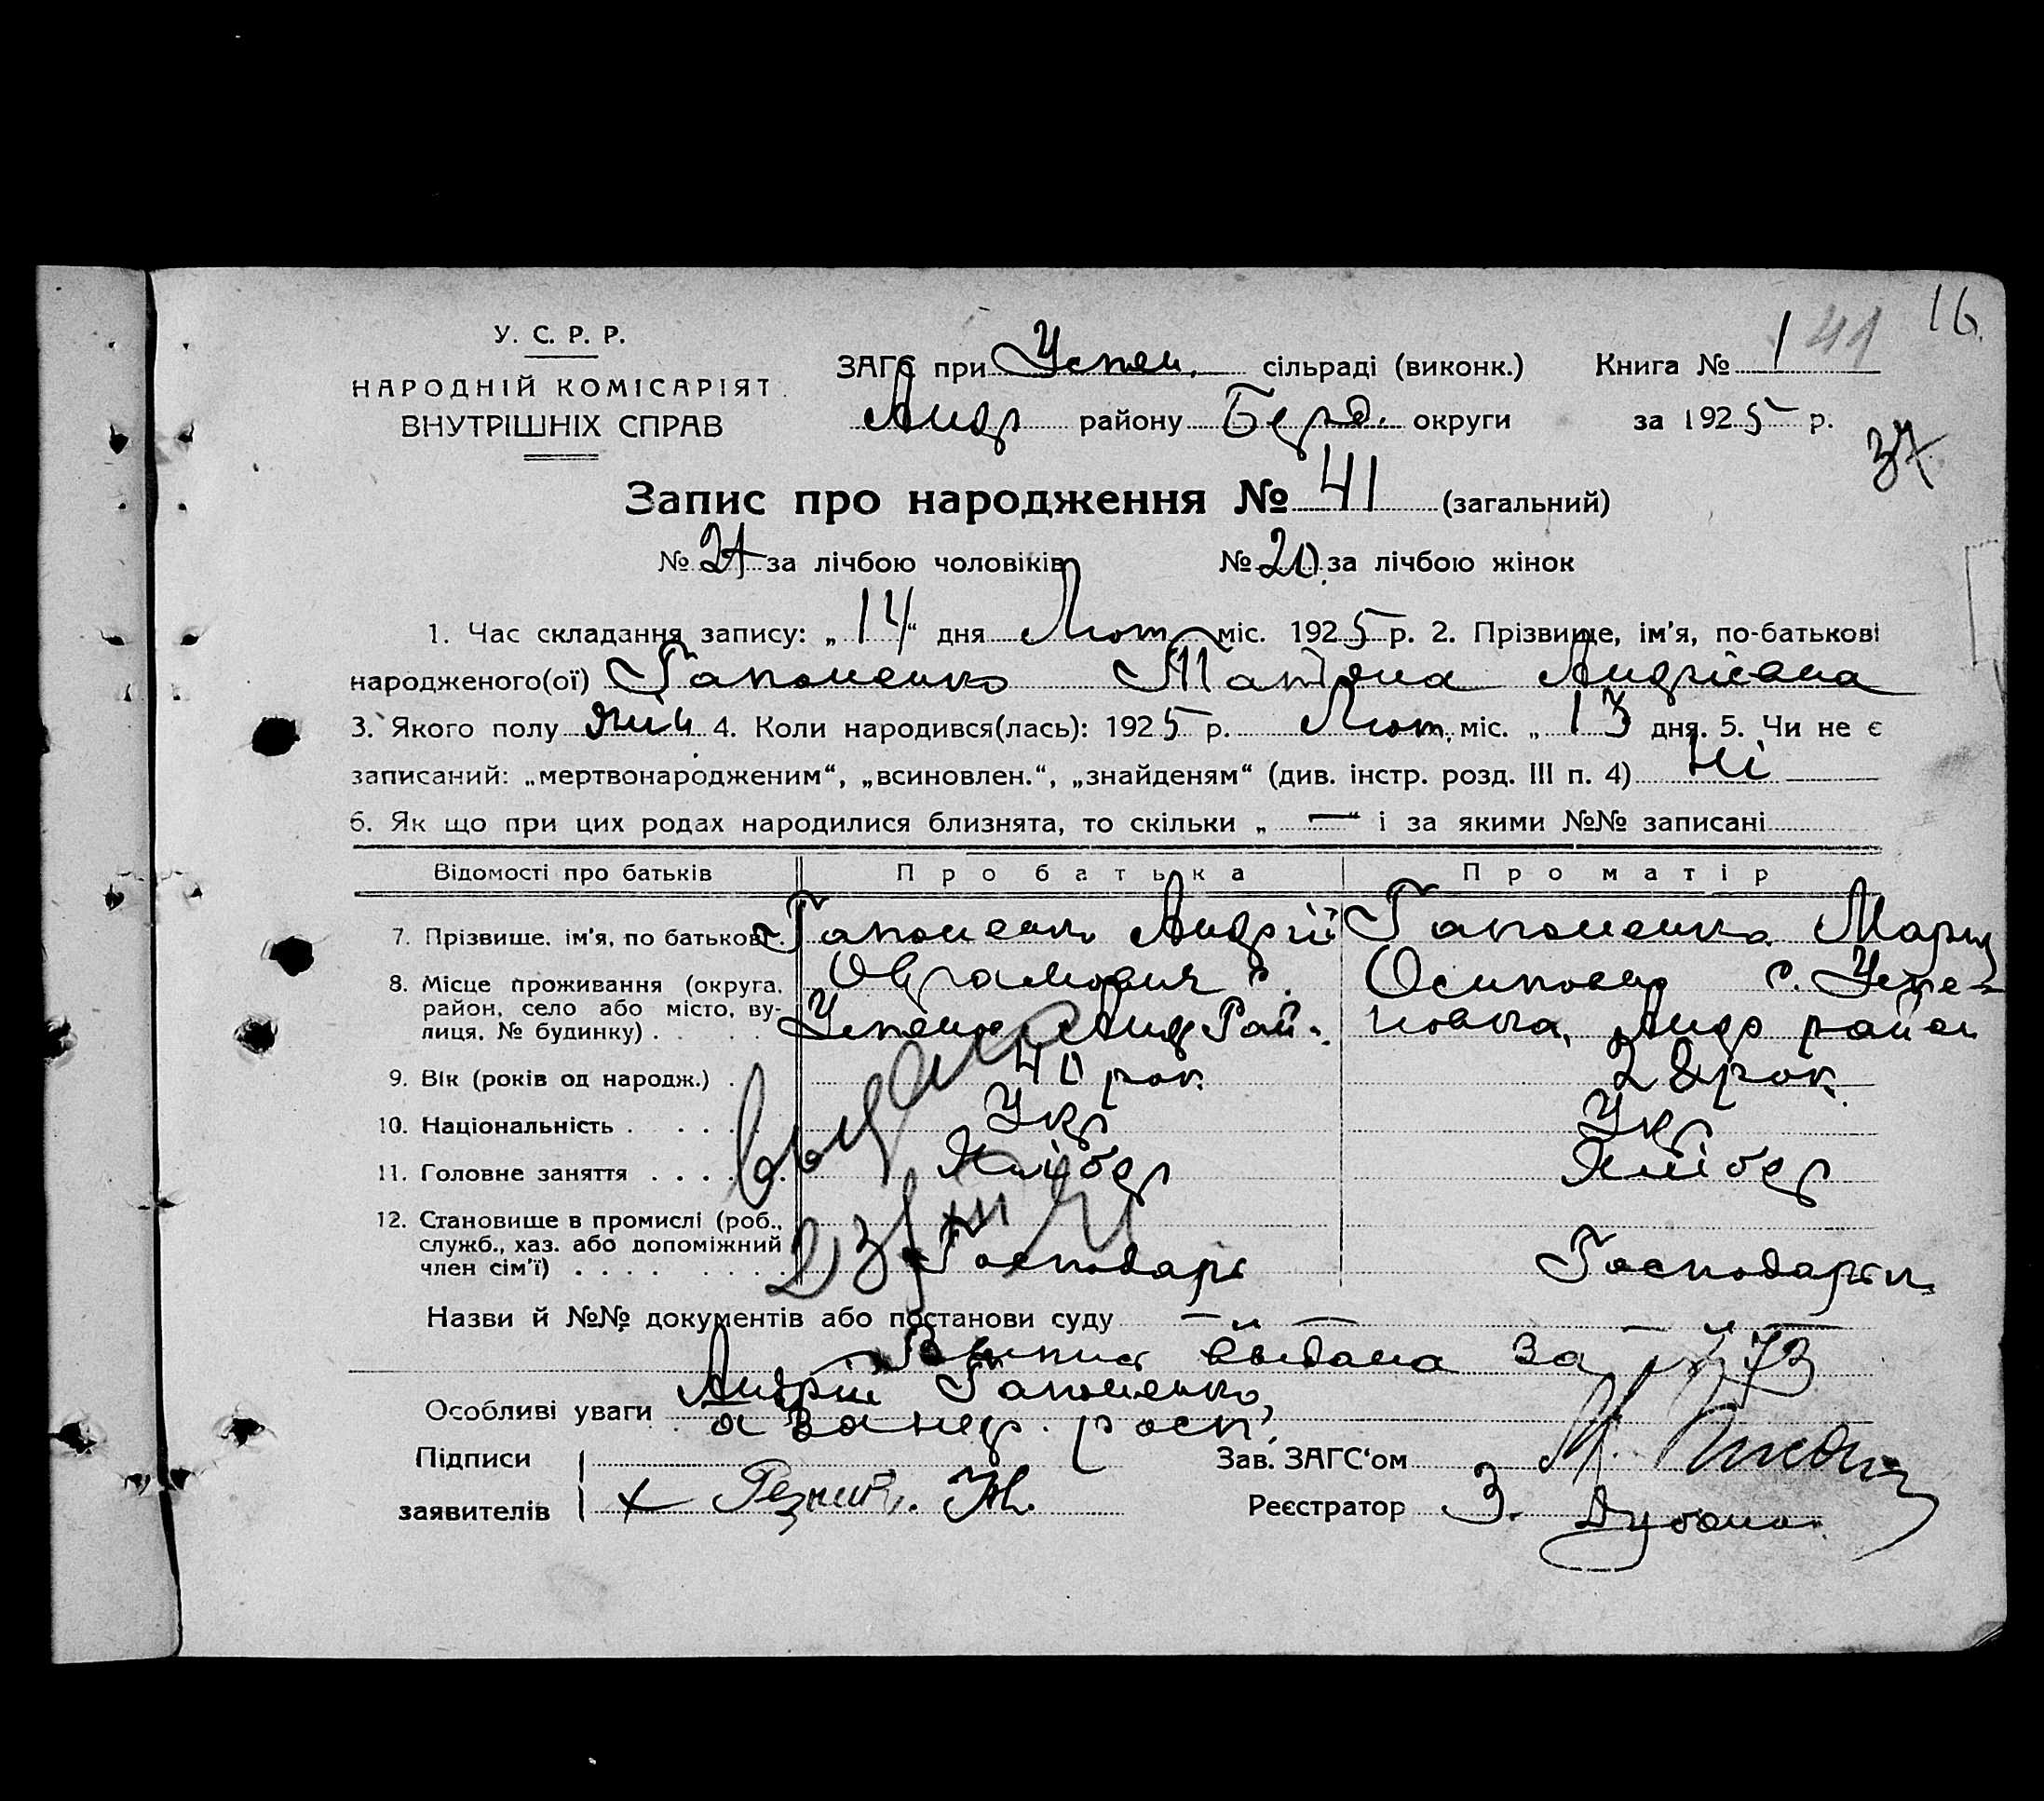 16
У. С. Р. Р.
НАРОДНІЙ КОМІСАРІЯТ
ВНУТРІШНІХ СПРАВ
ЗАГС при Успен. сільраді (виконк.) Книга № 1 41
Андр району Берд. округи за 1925 р.
37
Запис про народження № 41 (загальний)
№ 21 за лічбою чоловіків № 20 за лічбою жінок
1. Час складання запису: „14“ дня Лют міс. 1925 р. 2. Прізвище, ім'я, по-батькові
народженого(ої) Гапоненко Татяна Андріевна
3. Якого полу жін 4. Коли народився(лась): 1925 р. Лют. міс. „13 дня. 5. Чи не є
записаний: „мертвонародженим“, „всиновлен.“, „знайденям“ (див. інстр. розд. III п. 4) Ні
6. Як що при цих родах народилися близнята, то скільки „—“ і за якими №№ записані
Відомості про батьків Про батька Про матір
7. Прізвище, ім'я, по батькові Гапоненко Андрій Гапоненко Марія
8. Місце проживання (округа, Оврамович с. Осиповна с. Успе-
район, село або місто, ву-
лиця, № будинку) Андр Рай. Андр район
9. Вік (років од народж.) 40 рок. 28 рок.
10. Національність Укр Укр
11. Головне заняття Хлібор Хлібор
12. Становище в промислі (роб.,
служб., хаз. або допоміжний
член сім'ї) Господарь Господарьк
выдано
23/III
Назви й №№ документів або постанови суду — „ — — „ —
Выпись выдана за № 73
Андрій Гапоненко,
Особливі уваги а за негр. росп.
Підписи Зав. ЗАГС'ом
заявителів + Н. Реєстратор З.